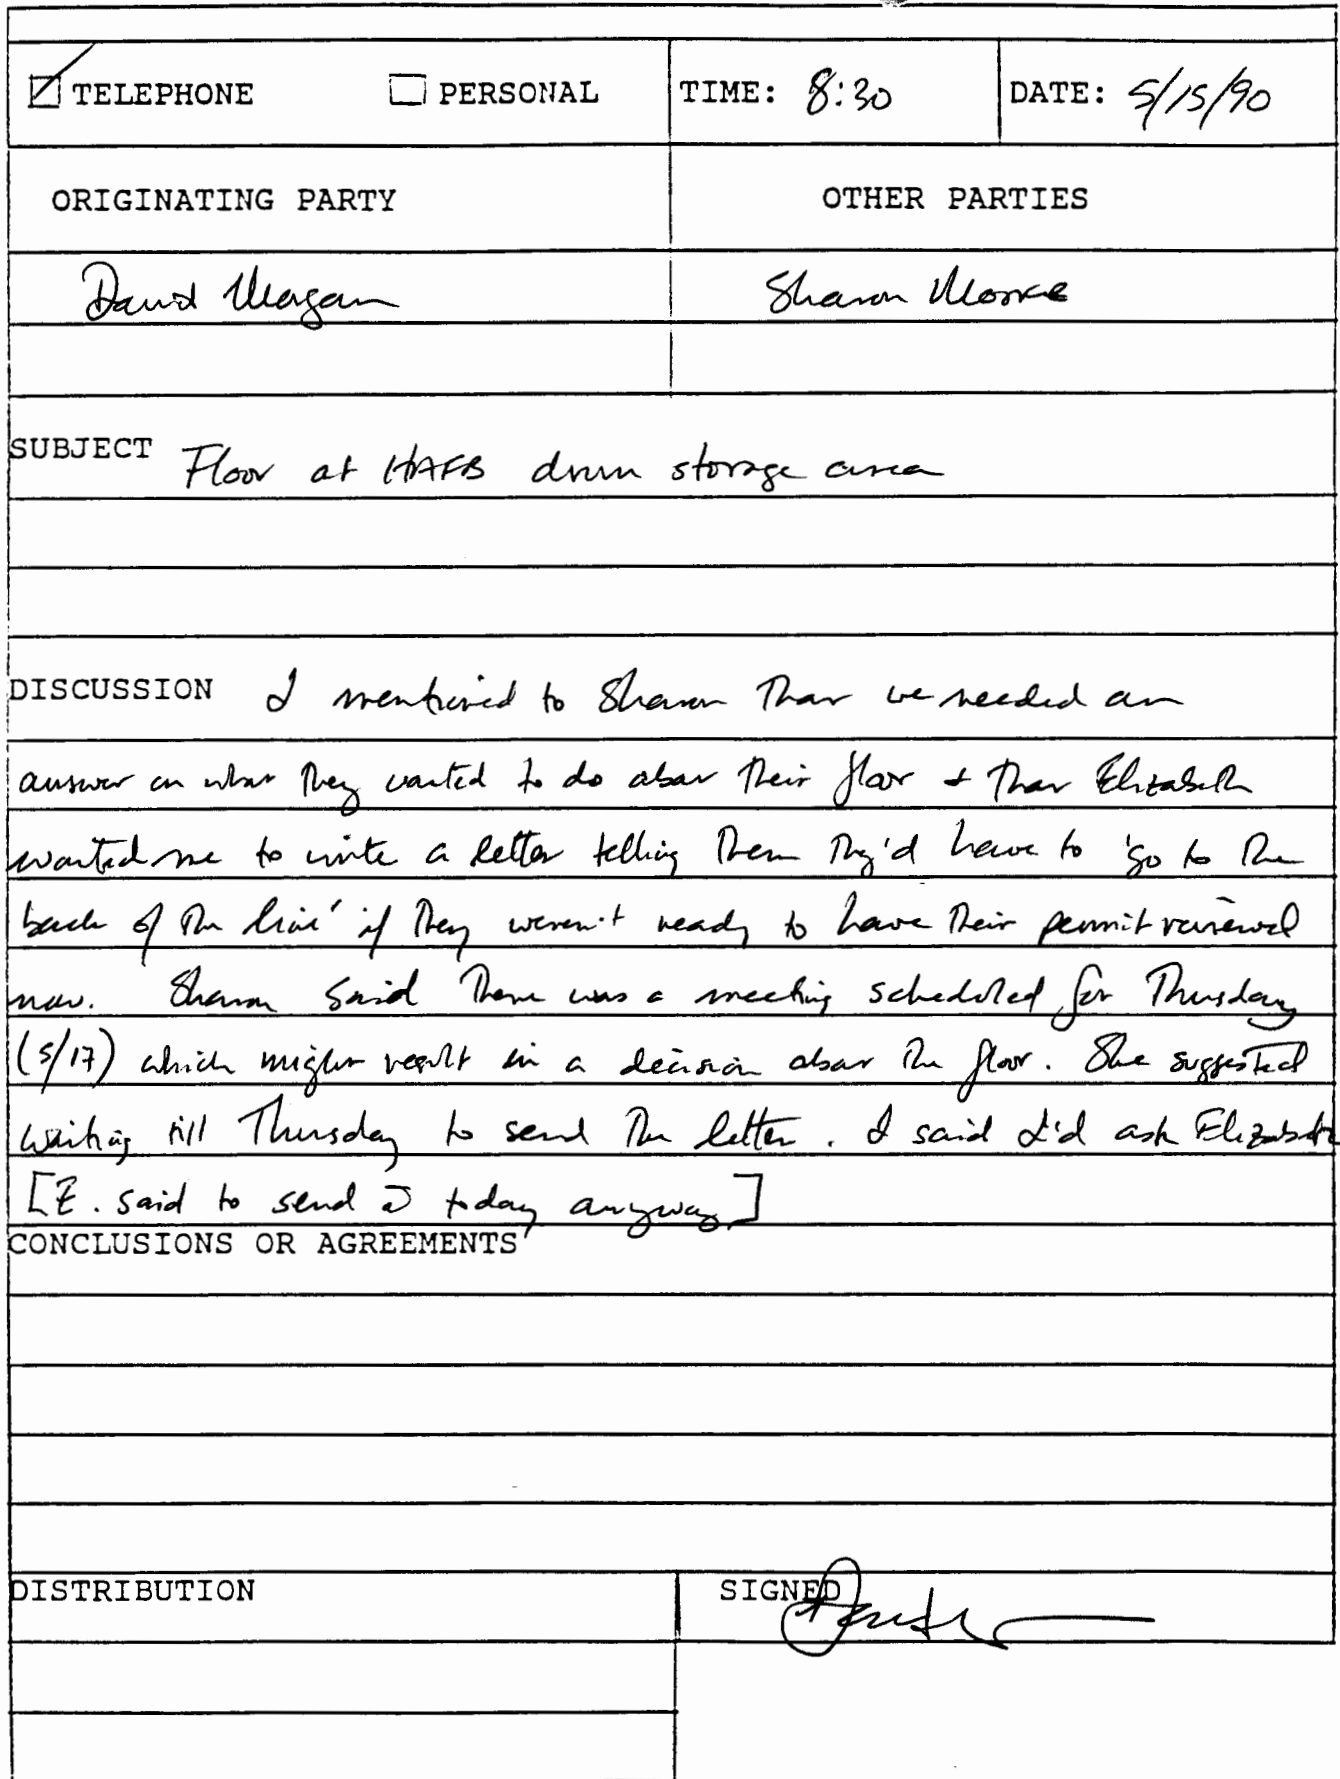 TELEPHONE PERSONAL TIME: 8:30 DATE: 5/15/90
ORIGINATING PARTY OTHER PARTIES
David Morgan Sharon Moore
SUBJECT Floor at HAFB drum storage area
DISCUSSION I mentioned to Sharon that we needed an
answer on what they wanted to do about their floor & that Elizabeth
wanted me to write a letter telling them they'd have to 'go to the
back of the line' if they weren't ready to have their permit reviewed
now. Sharon said there was a meeting scheduled for Thursday
(5/17) which might result in a decision about the floor. She suggested
waiting till Thursday to send the letter. I said I'd ask Elizabeth
[E. said to send it today anyway]
CONCLUSIONS OR AGREEMENTS
DISTRIBUTION SIGNED